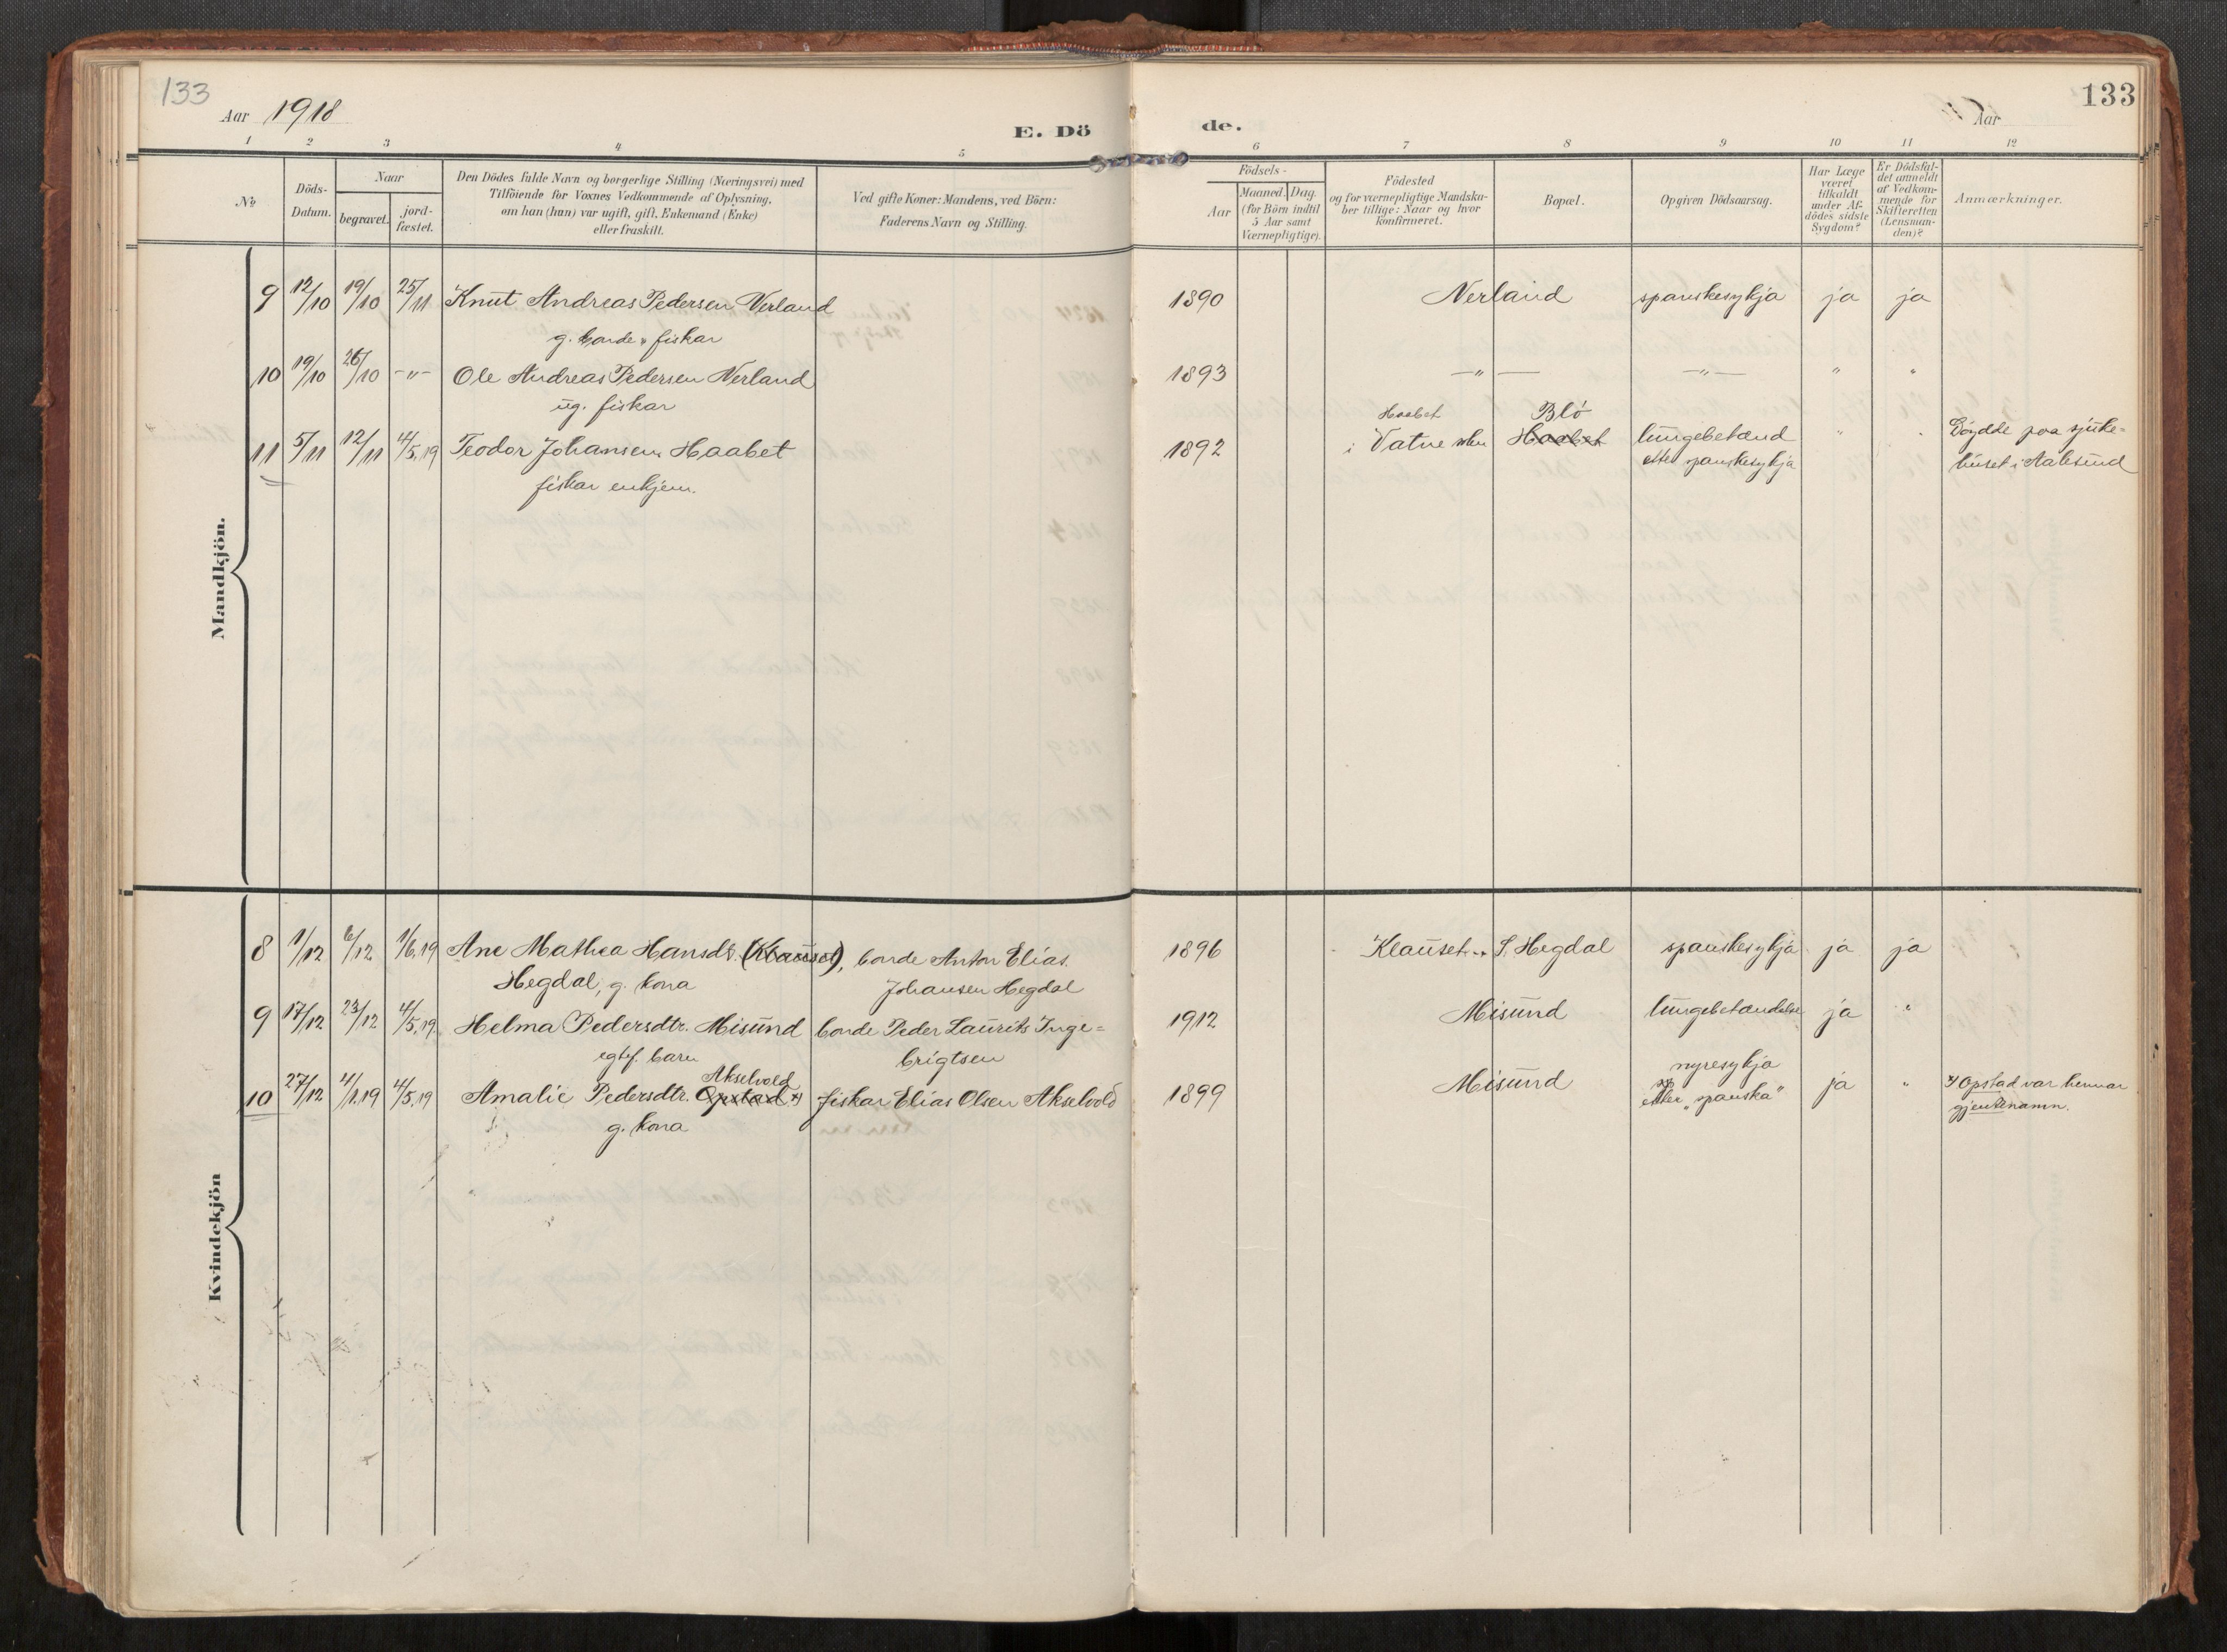 133
Aar 1918
E. Dö
de.
Aar
133
1 2 3 4 5 6 7 8 9 10 11 12
No
Döds-
Datum.
Naar
begravet.
jord-
fæstet.
Den Dödes fulde Navn og borgerlige Stilling (Næringsvei) med
Tilföiende for Voxnes Vedkommende af Oplysning,
om han (hun) var ugift, gift, Enkemand (Enke)
eller fraskilt.
Ved gifte Koner: Mandens, ved Börn:
Faderens Navn og Stilling.
Födsels-
Aar
Maaned. Dag.
(for Börn indtil
5 Aar samt
Værnepligtige).
Födested
og for værnepligtige Mandska-
ber tillige: Naar og hvor
konfirmeret.
Bopæl.
Opgiven Dödsaarsag.
Har Læge
været
tilkaldt
under Af-
dödes sidste
Sygdom?
Er Dödsfal-
det anmeldt
af Vedkom-
mende for
Skifteretten
(Lensman-
den)?
Anmærkninger.
Mandkjön.
9 12/10 19/10 25/11 Knut Andreas Pedersen Nerland 1890 Nerland spanskesykja ja ja
g. bonde, fiskar
10 19/10 26/10 -"- Ole Andreas Pedersen Nerland 1893 -"- -"- " "
ug. fiskar
Haabet Blö
11 5/11 12/11 4/5.19 Teodor Johansen Haabet 1892 i Vatne Haabet lungebetænd " " Döydde paa sjuke=
fiskar enkjem. etter spanskesykja huset i Aalesund
Kvindekjön
8 1/12 6/12 1/6.19 Ane Mathea Hansdt. (Klauset), bonde Anton Elias 1896 Klauset S. Hegdal spanskesykja ja ja
Hegdal, g. kona Johansen Hegdal
9 17/12 23/12 4/5.19. Helma Pedersdtr. Misund bonde Peder Laurits Inge= 1912 Misund lungebetændelse ja "
egtef. barn brigtsen
Akselvold nyresykja
10 27/12 4/1.19 4/5.19 Amalie Pedersdtr. Opstad x) fiskar Elias Olsen Akselvold 1899 Misund etter "spanska" ja " x) Opstad var hennar
g. kona gjentenamn.